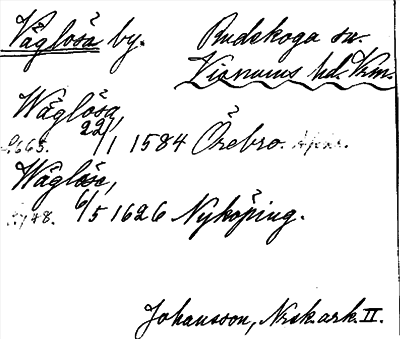 Våglösa by. Rudskoga sn.
Visnums hd. Vrm.
Wåglösa,
22/1 1584 Örebro.
Wåglöse,
6/5 1626 Nyköping.
Johansson, Nrsk.ark. II.